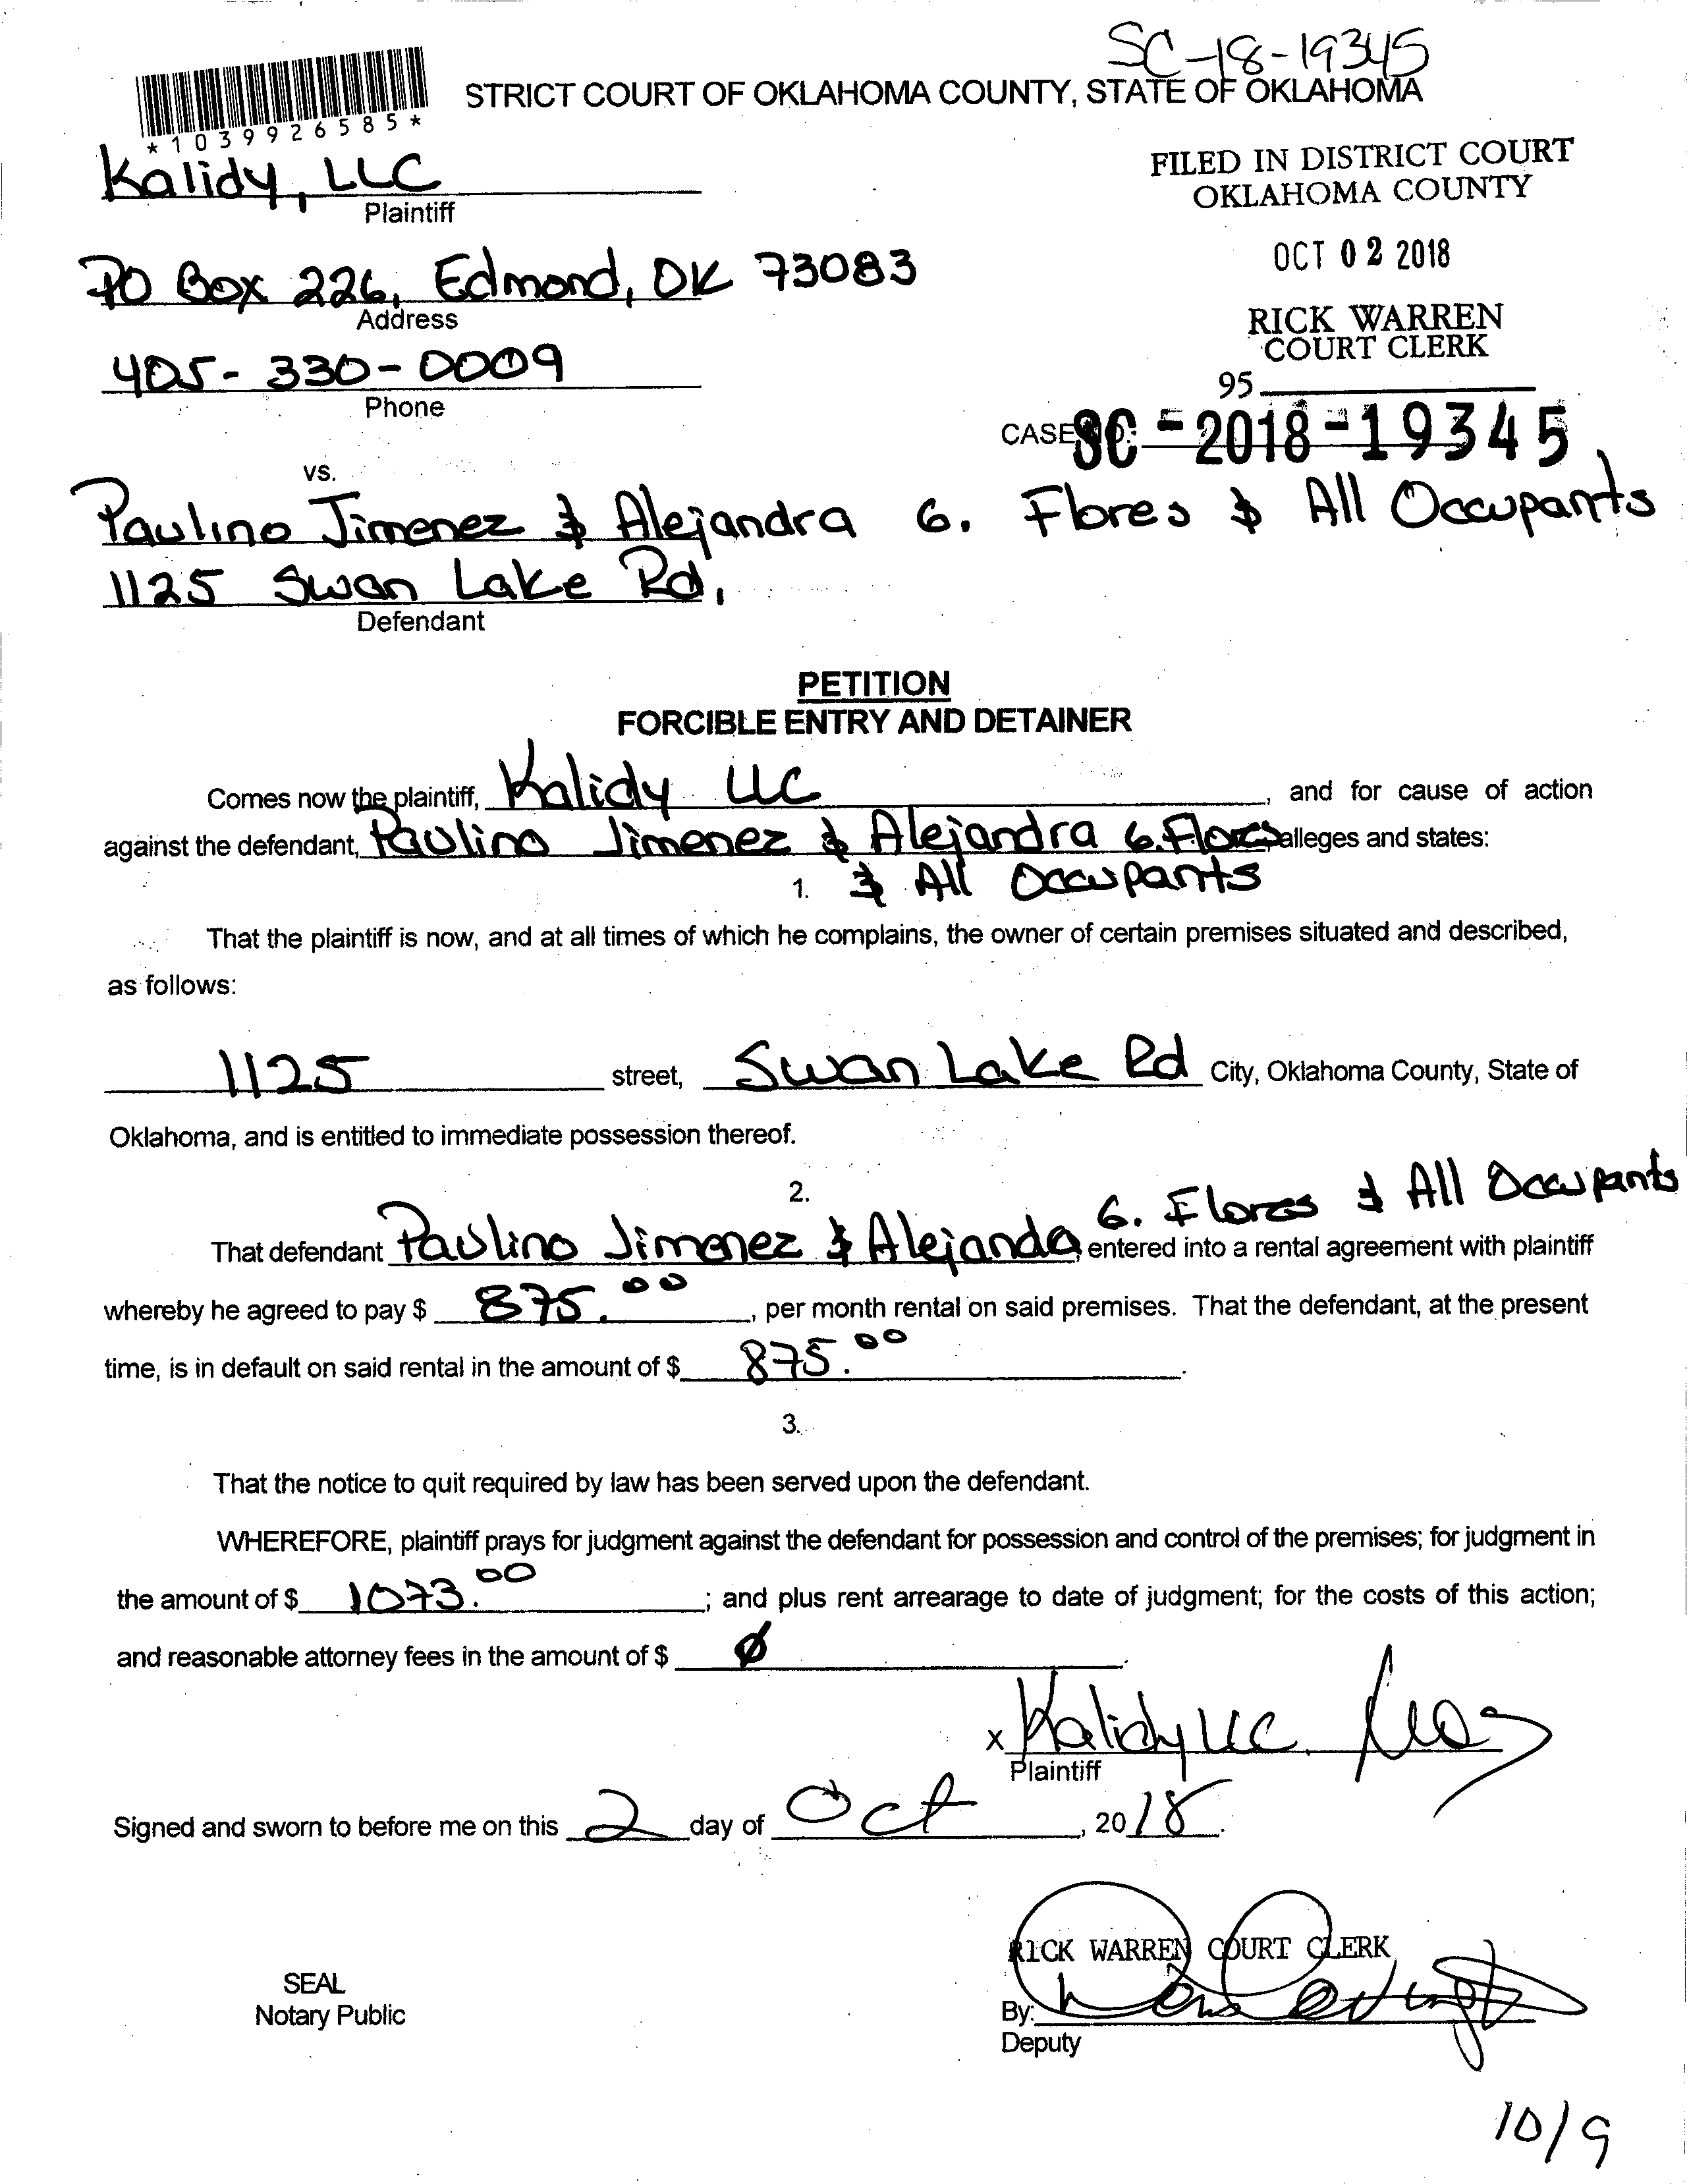 SC-18-19345
STRICT COURT OF OKLAHOMA COUNTY, STATE OF OKLAHOMA
*1039926585*
Kalidy, LLC
Plaintiff
FILED IN DISTRICT COURT
OKLAHOMA COUNTY
PO Box 226, Edmond, OK 73083
Address
OCT 02 2018
RICK WARREN
COURT CLERK
405-330-0009
Phone
95
CASE NO: SC-2018-19345
vs.
Paulino Jimenez & Alejandra G. Flores & All Occupants
1125 Swan Lake Rd,
Defendant
PETITION
FORCIBLE ENTRY AND DETAINER
Comes now the plaintiff, Kalidy LLC, and for cause of action
against the defendant, Paulino Jimenez & Alejandra G. Flores alleges and states:
1. & All Occupants
That the plaintiff is now, and at all times of which he complains, the owner of certain premises situated and described,
as follows:
1125 street, Swan Lake Rd City, Oklahoma County, State of
Oklahoma, and is entitled to immediate possession thereof.
2.
That defendant Paulino Jimenez & Alejanda G. Flores & All Occupants, entered into a rental agreement with plaintiff
whereby he agreed to pay $ 875.00, per month rental on said premises. That the defendant, at the present
time, is in default on said rental in the amount of $ 875.00.
3.
That the notice to quit required by law has been served upon the defendant.
WHEREFORE, plaintiff prays for judgment against the defendant for possession and control of the premises; for judgment in
the amount of $ 1073.00; and plus rent arrearage to date of judgment; for the costs of this action;
and reasonable attorney fees in the amount of $ Ø.
x Kalidy LLC
Plaintiff
Signed and sworn to before me on this 2 day of Oct, 2018.
RICK WARREN COURT CLERK
SEAL
Notary Public
By:
Deputy
10/9